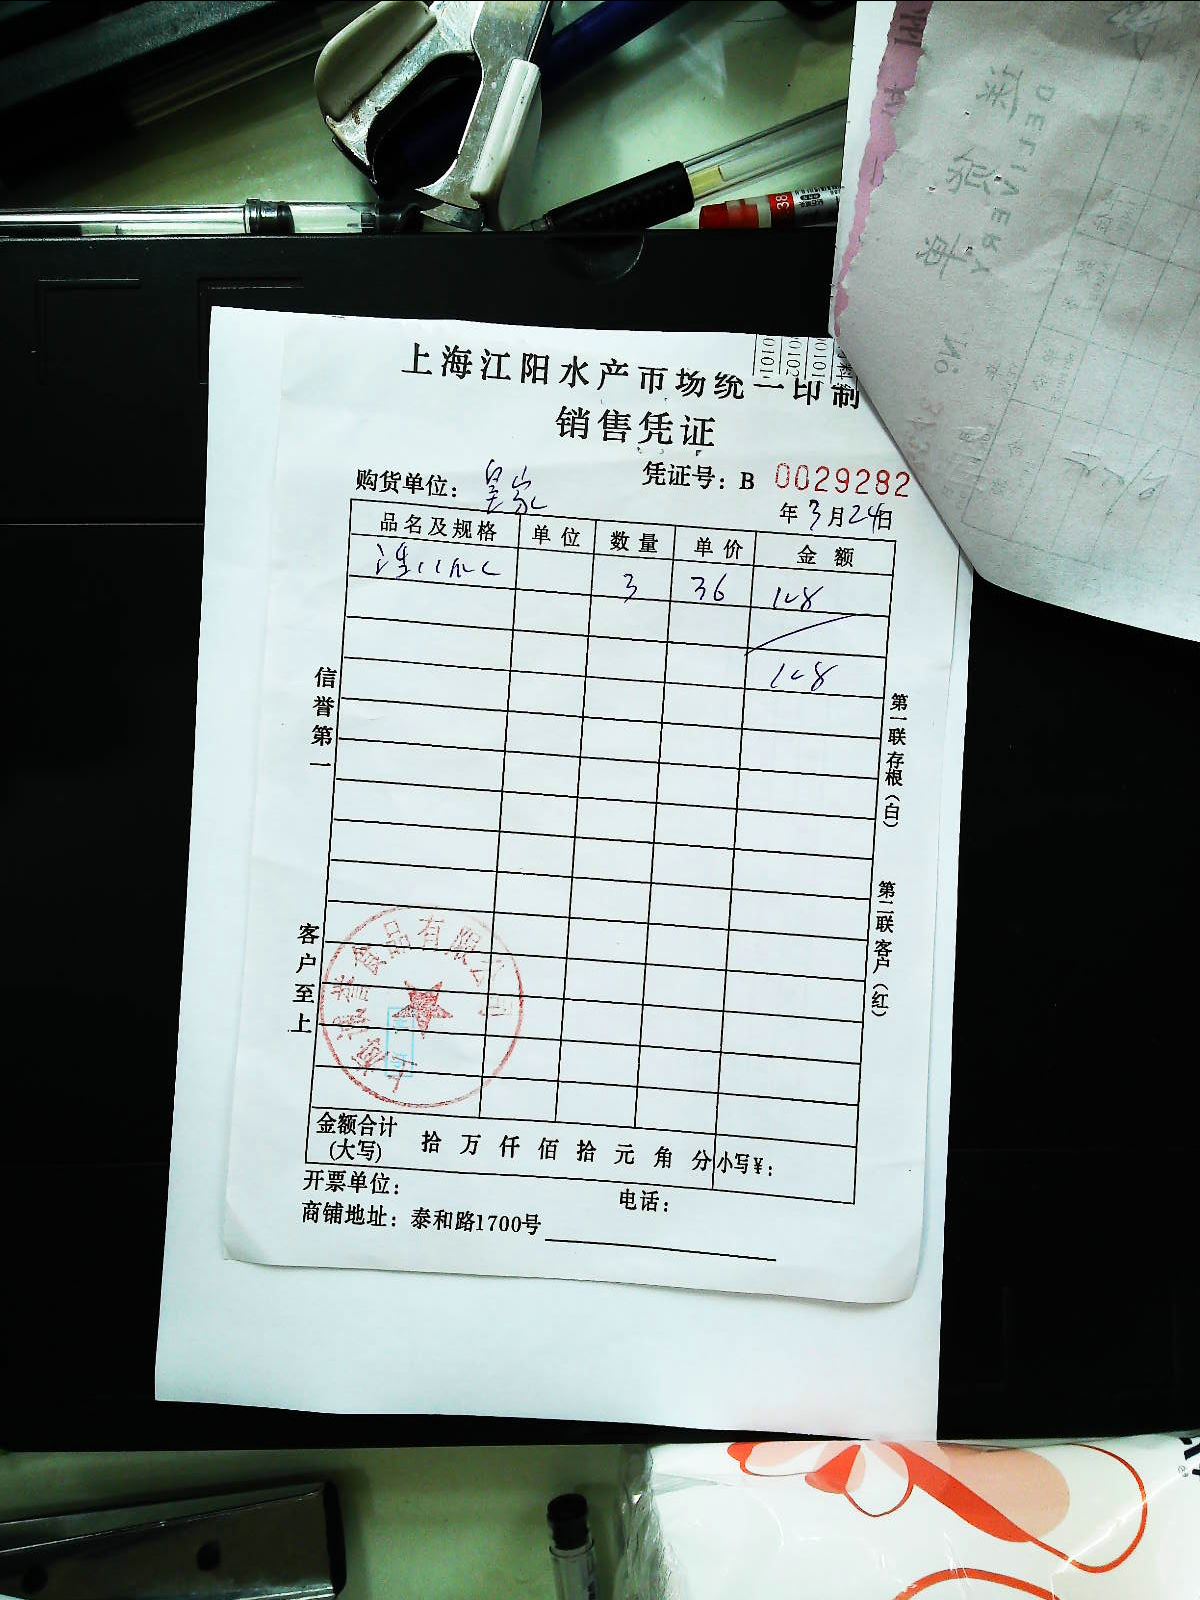 上海江阳水产市场统一印制
销售凭证
购货单位：皇家
凭证号：B 0029282
年3月24日
品名及规格 单位 数量 单价 金额
3 36 108
108
信誉第一
客户至上
第一联存根（白）
第二联客户（红）
食品有限公司
金额合计（大写） 拾 万 仟 佰 拾 元 角 分 小写¥：
开票单位： 电话：
商铺地址：泰和路1700号
DELIVERY
No
38